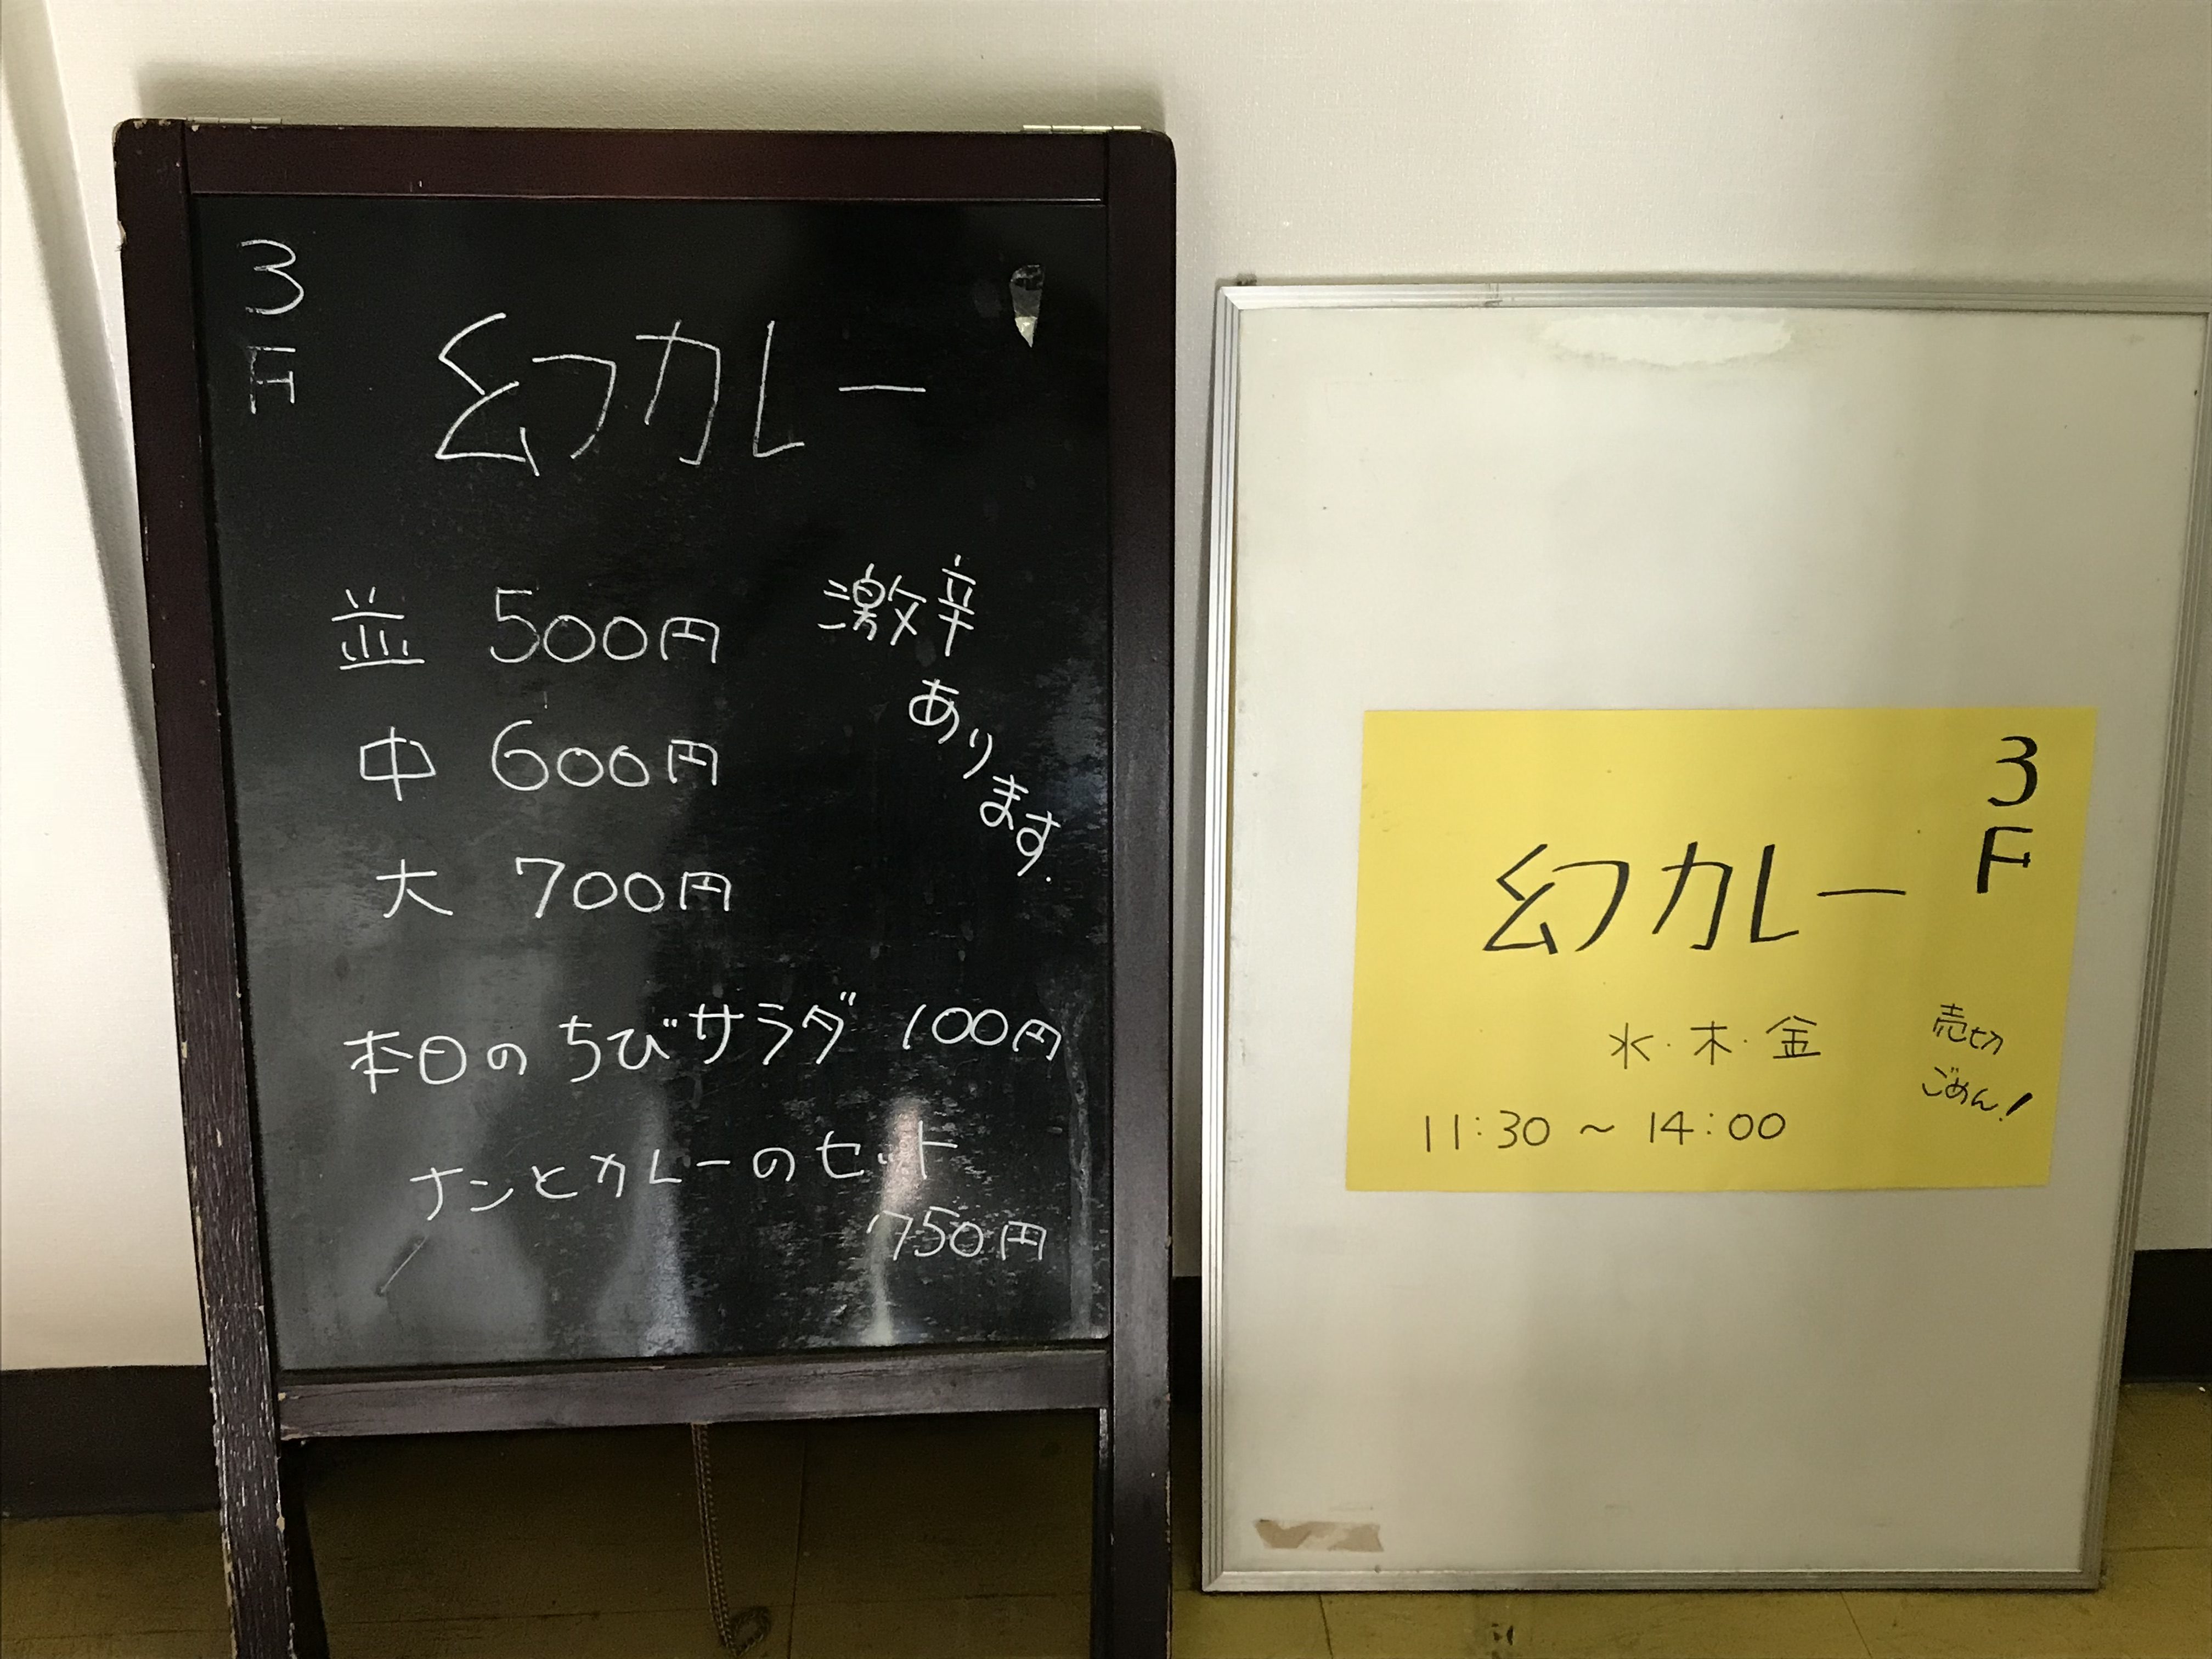 3F
幻カレー
並 500円
中 600円
大 700円
激辛
あります.
本日のちびサラダ 100円
ナンとカレーのセット
750円
3F
幻カレー
水・木・金
11:30 ~ 14:00
売切
ごめん!